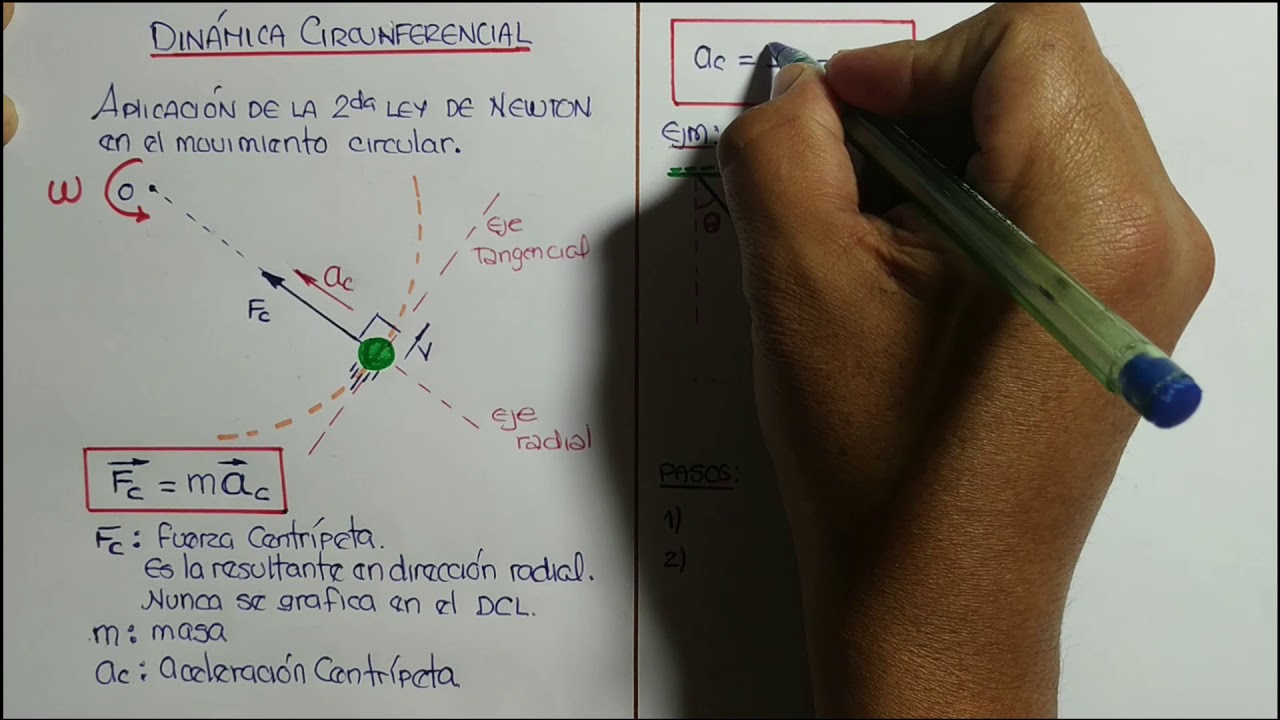 DINÁMICA CIRCUNFERENCIAL
APLICACIÓN DE LA 2da LEY DE NEWTON
en el movimiento circular.
ω
O
Eje
Tangencial
ac
Fc
V
Eje
radial
Fc = m ac
Fc: Fuerza Centrípeta.
Es la resultante en dirección radial.
Nunca se grafica en el DCL.
m: masa
ac: Aceleración Centrípeta
ac =
EJM:
θ
PASOS:
1)
2)